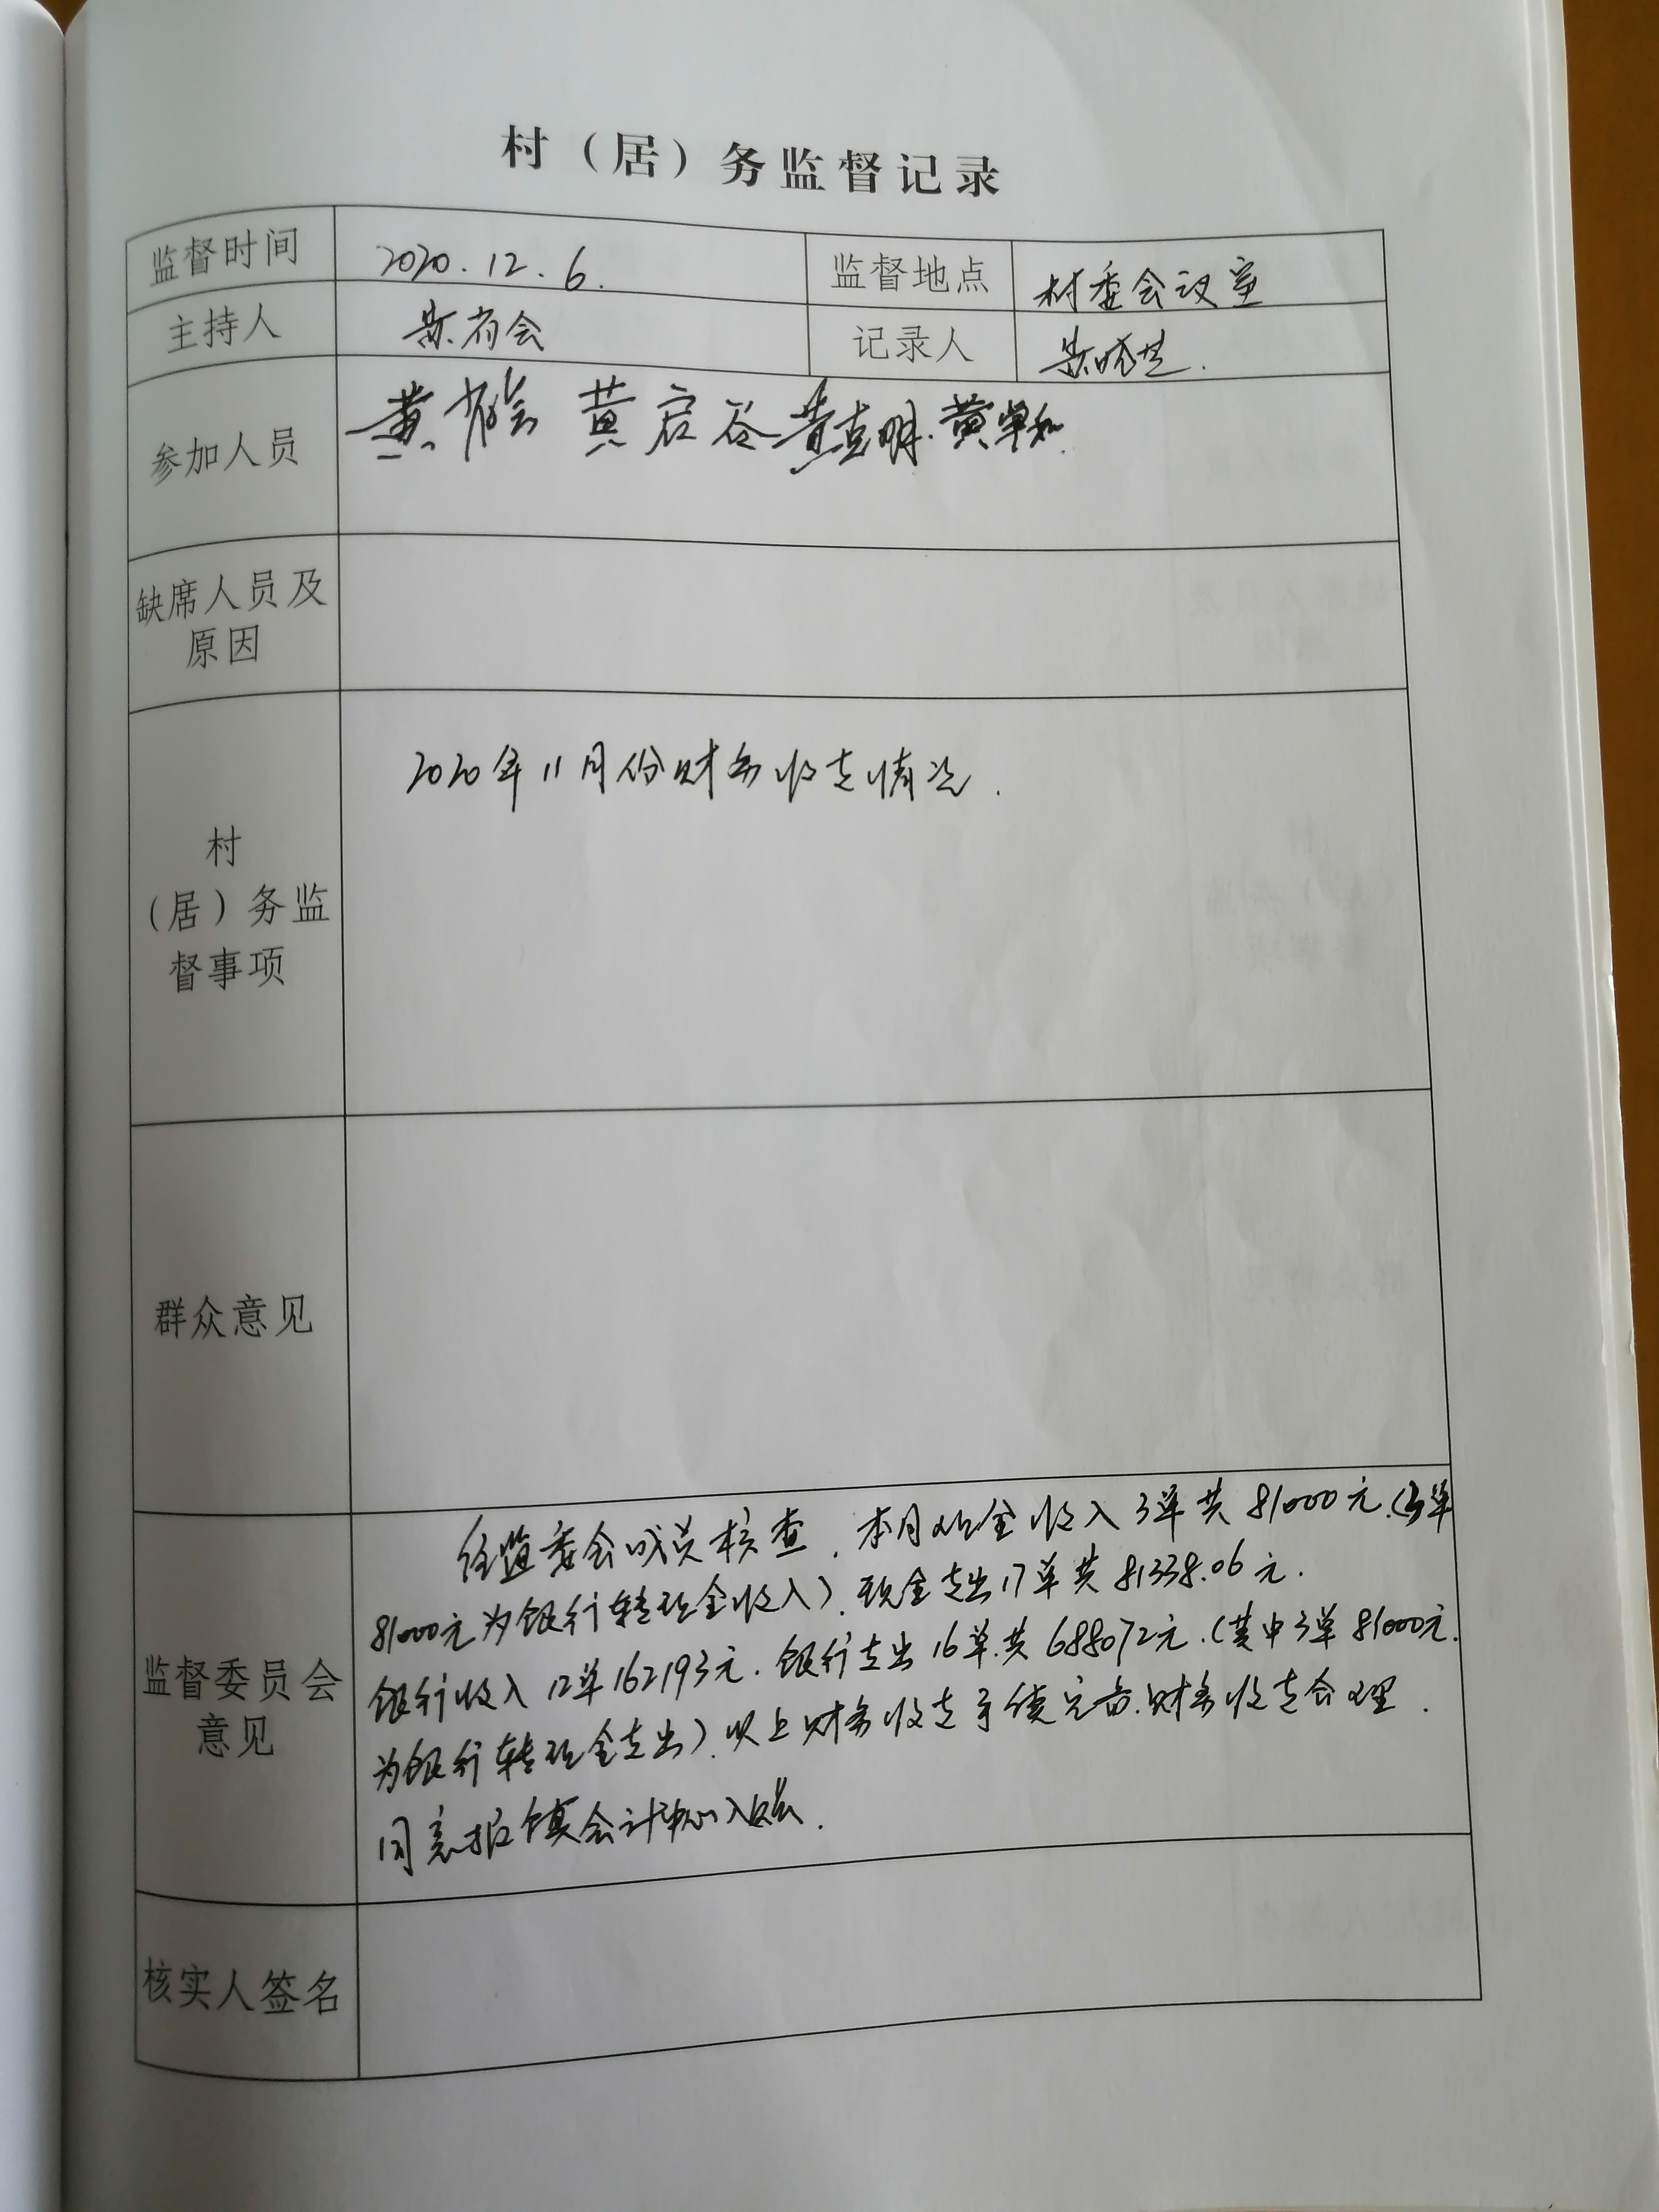 村（居）务监督记录
监督时间 2020.12.6. 监督地点 村委会议室
主持人 黄有会 记录人 黄晓芝.
参加人员 黄有会 黄启谷 黄克明. 黄单知.
缺席人员及
原因
2020年11月份财务收支情况.
村
（居）务监
督事项
群众意见
经监委会成员核查、本月现金收入3单共81000元.（3单
81000元为银行转现金收入）、现金支出17单共81338.06元.
银行收入12单162193元.银行支出16单.共688072元.（其中3单81000元.
监督委员会
意见
为银行转现金支出）、以上财务收支手续完备.财务收支合理.
同意报镇会计中心入账.
核实人签名